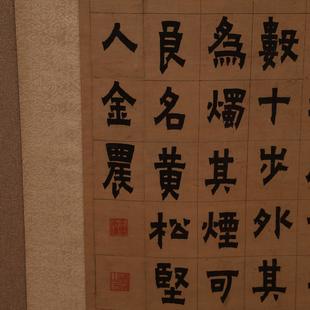 數十步外其
為燭其煙可
良名黃松堅
人金農